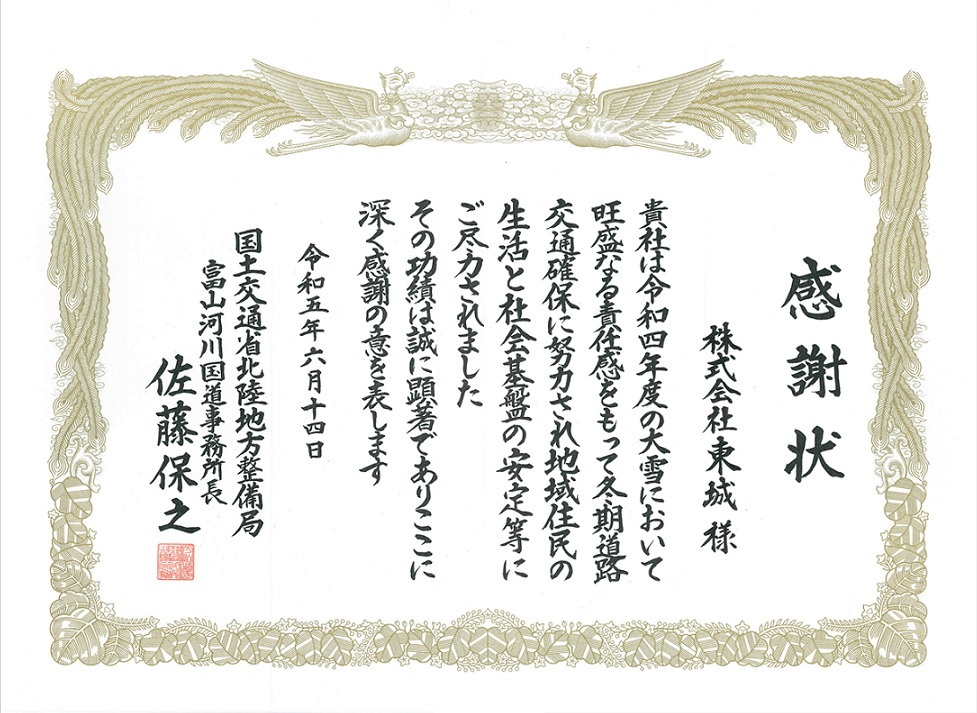 感謝状
株式会社東城 様
貴社は令和四年度の大雪において
旺盛なる責任感をもって冬期道路
交通確保に努力され地域住民の
生活と社会基盤の安定等に
ご尽力されました
その功績は誠に顕著でありここに
深く感謝の意を表します
令和五年六月十四日
国土交通省北陸地方整備局
富山河川国道事務所長
佐藤保之